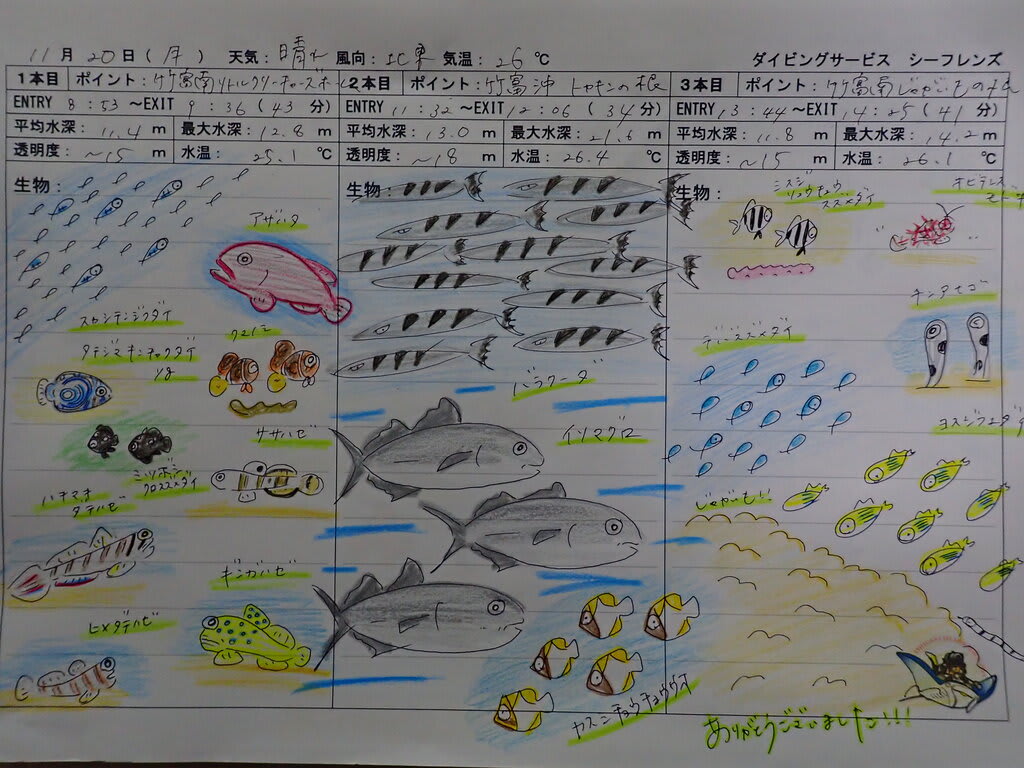 11月20日(月) 天気:晴れ 風向:北東 気温:26℃ ダイビングサービス シーフレンズ
1本目 ポイント:竹富南リトルクリーチャーズホール
ENTRY 8:53～EXIT 9:36(43分)
平均水深:11.4m 最大水深:12.8m
透明度:~15m 水温:25.1℃
生物:
アザハタ
スカシテンジクダイ
タテジマキンチャクダイ
yg
クマノミ
ササハゼ
ミツボシ
クロスズメダイ
ハチマキ
ダテハゼ
ギンガハゼ
ヒメダテハゼ
2本目 ポイント:竹富沖 トカキンの根
ENTRY 11:32～EXIT 12:06(34分)
平均水深:13.0m 最大水深:21.6m
透明度:~18m 水温:26.4℃
生物:
バラクーダ
イソマグロ
カスミチョウチョウウオ
3本目 ポイント:竹富南じゃがいもの根
ENTRY 13:44～EXIT 14:25(41分)
平均水深:11.8m 最大水深:14.2m
透明度:~15m 水温:26.1℃
生物:
ミスジ
リュウキュウ
スズメダイ
チンアナゴ
デバスズメダイ
ヨスジフエダイ
じゃがいも!!
ありがとうございました!!!